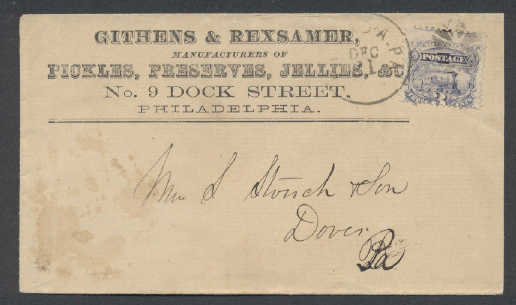 GITHENS & REXSAMER,
MANUFACTURERS OF
PICKLES, PRESERVES, JELLIES, &C
No. 9 DOCK STREET,
PHILADELPHIA.
A. PA
DEC
1
POSTAGE
Mr S Stouch & Son
Dover
Pa